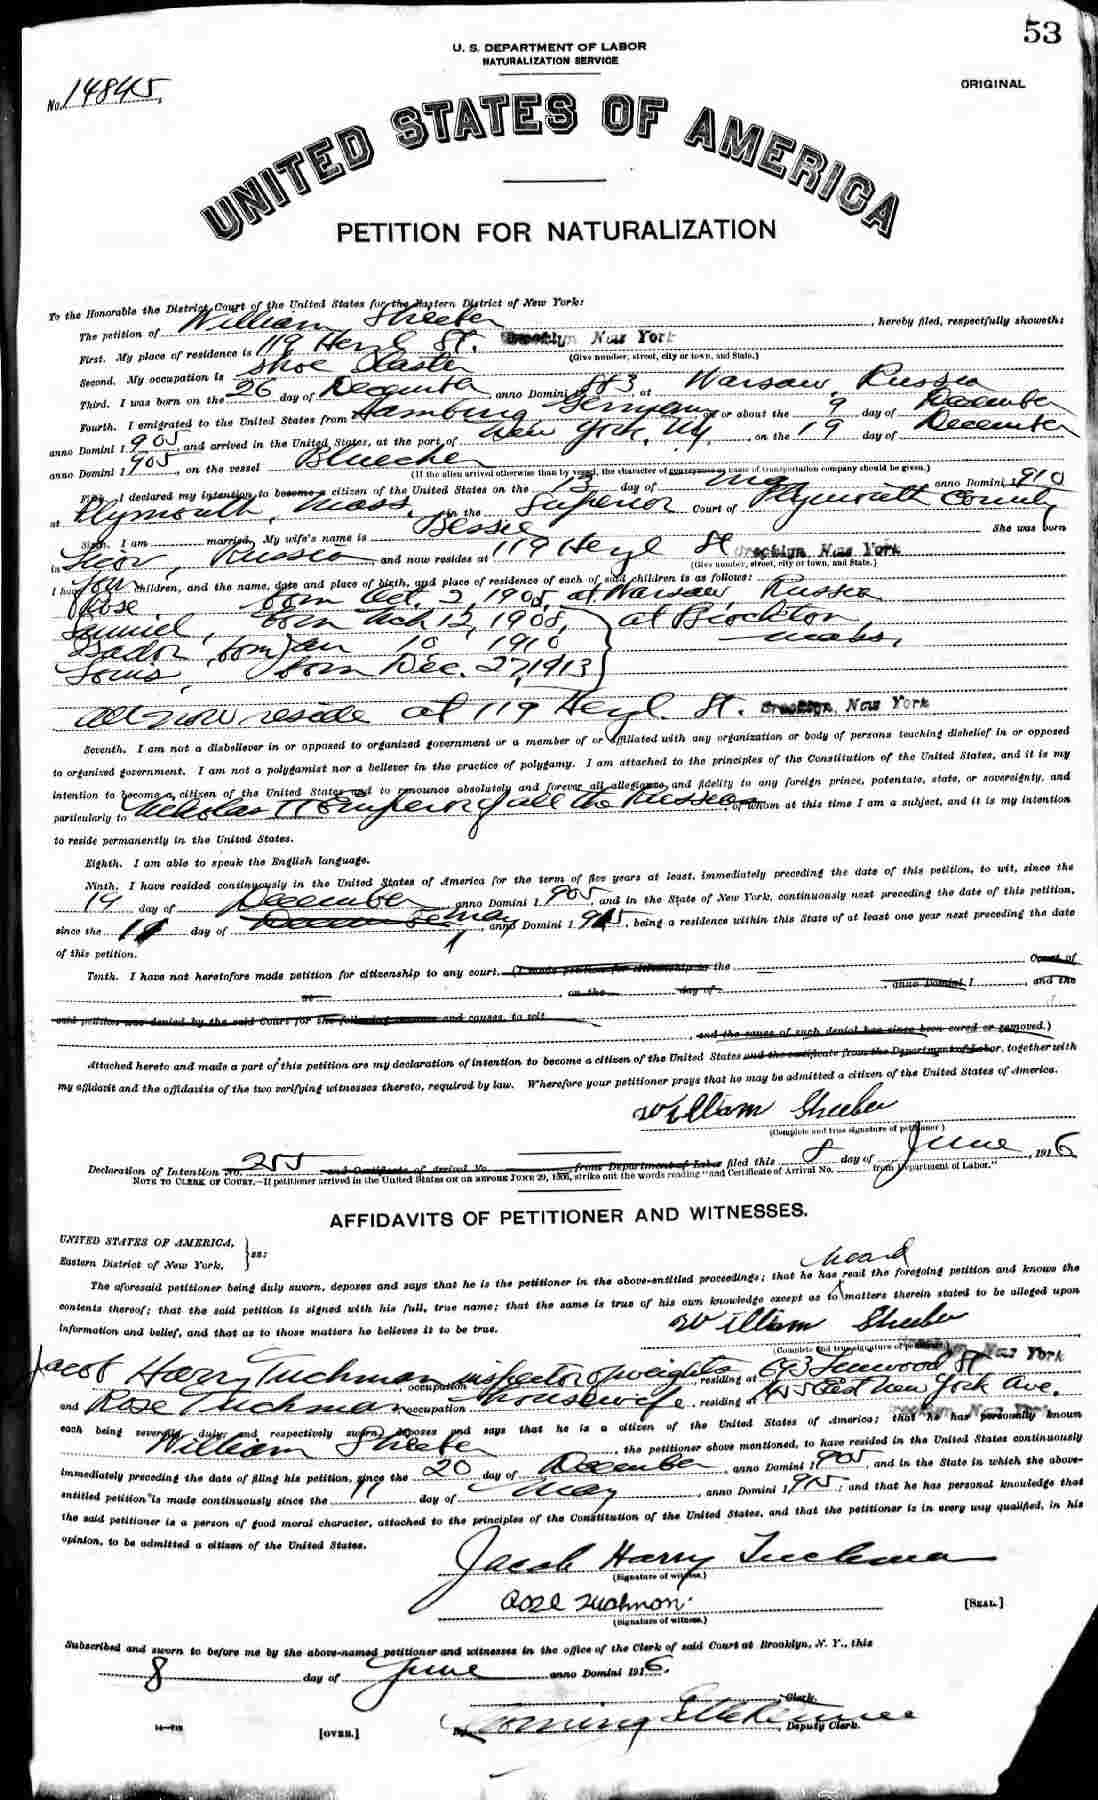 53
U. S. DEPARTMENT OF LABOR
NATURALIZATION SERVICE
No. 14845
ORIGINAL
UNITED STATES OF AMERICA
PETITION FOR NATURALIZATION
To the Honorable the District Court of the United States for the Eastern District of New York:
The petition of William Sheeber, hereby filed, respectfully showeth:
First. My place of residence is 119 Herzl St. Brooklyn New York
(Give number, street, city or town, and State.)
Second. My occupation is Shoe
Third. I was born on the 26 day of December anno Domini 1883, at Warsaw, Russia
Fourth. I emigrated to the United States from Hamburg Germany on or about the 9 day of December
anno Domini 1905, and arrived in the United States, at the port of New York, N.Y. on the 19 day of December
anno Domini 1905, on the vessel Bluecher
(If the alien arrived otherwise than by vessel, the character of conveyance or name of transportation company should be given.)
Fifth. I declared my intention to become a citizen of the United States on the 13 day of anno Domini 1910
at Plymouth, Mass. in the Superior Court of Plymouth County
Sixth. I am married. My wife's name is Bessie She was born
in Russia and now resides at 119 Herzl St Brooklyn New York
(Give number, street, city or town, and State.)
I have four children, and the name, date and place of birth, and place of residence of each of said children is as follows:
Rose born Oct. 2, 1905, at Warsaw, Russia
Samuel, born Mch 12, 1908, at Brockton
Isador, born Jan 10 1910 Mass,
Louis, born Dec. 27, 1913
all now reside at 119 Herzl St. Brooklyn, New York
Seventh. I am not a disbeliever in or opposed to organized government or a member of or affiliated with any organization or body of persons teaching disbelief in or opposed
to organized government. I am not a polygamist nor a believer in the practice of polygamy. I am attached to the principles of the Constitution of the United States, and it is my
intention to become a citizen of the United States and to renounce absolutely and forever all allegiance and fidelity to any foreign prince, potentate, state, or sovereignty, and
particularly to Nicholas II Emperor of all the Russias of whom at this time I am a subject, and it is my intention
to reside permanently in the United States.
Eighth. I am able to speak the English language.
Ninth. I have resided continuously in the United States of America for the term of five years at least, immediately preceding the date of this petition, to wit, since the
19 day of December anno Domini 1905, and in the State of New York, continuously next preceding the date of this petition,
since the 11 day of May, anno Domini 1915, being a residence within this State of at least one year next preceding the date
of this petition.
Tenth. I have not heretofore made petition for citizenship to any court. (I made petition for citizenship to the Court of
at , on the day of , anno Domini 1 , and the
said petition was denied by the said Court for the following reasons and causes, to wit
, and the cause of such denial has since been cured or removed.)
Attached hereto and made a part of this petition are my declaration of intention to become a citizen of the United States and the certificate from the Department of Labor, together with
my affidavit and the affidavits of the two verifying witnesses thereto, required by law. Wherefore your petitioner prays that he may be admitted a citizen of the United States of America.
William Sheeber
(Complete and true signature of petitioner)
Declaration of Intention No. 255 and Certificate of Arrival No. from Department of Labor filed this 8 day of June, 1916
NOTE TO CLERK OF COURT.—If petitioner arrived in the United States ON OR BEFORE JUNE 29, 1906, strike out the words reading "and Certificate of Arrival No. from Department of Labor."
AFFIDAVITS OF PETITIONER AND WITNESSES.
UNITED STATES OF AMERICA,
Eastern District of New York, } ss:
heard
The aforesaid petitioner being duly sworn, deposes and says that he is the petitioner in the above-entitled proceedings; that he has read the foregoing petition and knows the
contents thereof; that the said petition is signed with his full, true name; that the same is true of his own knowledge except as to matters therein stated to be alleged upon
information and belief, and that as to those matters he believes it to be true.
William Sheeber
(Complete and true signature of petitioner)
New York
Jacob Harry Tuchman, occupation inspector of weights, residing at 693 Linwood St
and Rose Tuchman, occupation housewife, residing at East New York Ave.
Brooklyn New York
each being severally, duly, and respectively sworn, deposes and says that he is a citizen of the United States of America; that he has personally known
William Sheeber, the petitioner above mentioned, to have resided in the United States continuously
immediately preceding the date of filing his petition, since the 20 day of December, anno Domini 1905, and in the State in which the above-
entitled petition is made continuously since the 11 day of May, anno Domini 1915; and that he has personal knowledge that
the said petitioner is a person of good moral character, attached to the principles of the Constitution of the United States, and that the petitioner is in every way qualified, in his
opinion, to be admitted a citizen of the United States.
Jacob Harry Tuchman
(Signature of witness.)
Rose Tuchman
(Signature of witness.)
[SEAL.]
Subscribed and sworn to before me by the above-named petitioner and witnesses in the office of the Clerk of said Court at Brooklyn, N. Y., this
8 day of June anno Domini 1916.
Clerk.
[OVER.]
By , Deputy Clerk.